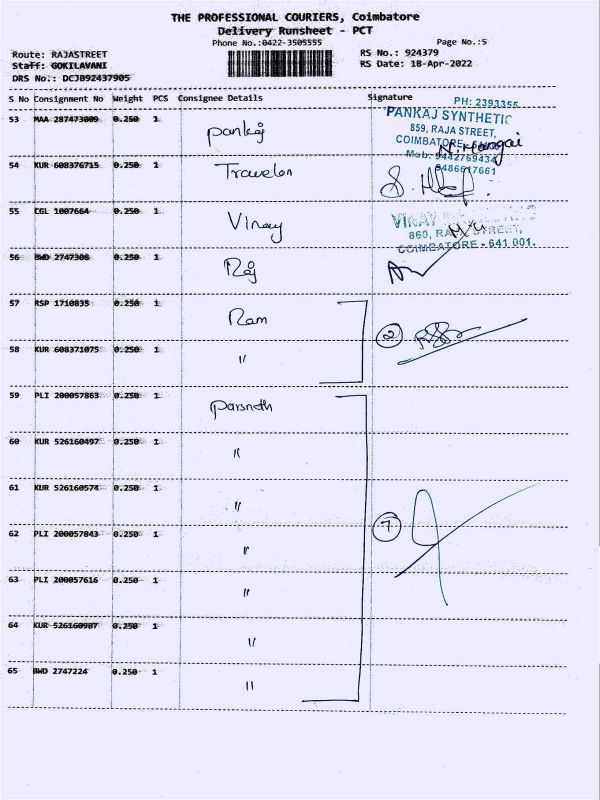 THE PROFESSIONAL COURIERS, Coimbatore
Delivery Runsheet - PCT
Phone No.:0422-3505555
Page No.:5
Route: RAJASTREET
RS No.: 924379
Staff: GOKILAVANI
RS Date: 18-Apr-2022
DRS No.: DCJB92437905
S No Consignment No Weight PCS Consignee Details Signature
PH: 2393355
53 MAA 287473009 0.250 1 Pankaj
PANKAJ SYNTHETIC
859, RAJA STREET,
COIMBATORE
Mob: 9442769434
9486617661
54 KUR 608376715 0.250 1
55 CGL 1007664 0.250 1 Vinay
VINAY
860, RAJA STREET,
COIMBATORE - 641 001.
56 BWD 2747308 0.250 1 Raj
57 RSP 1710835 0.250 1 Ram
2
58 KUR 608371075 0.250 1 "
59 PLI 200057863 0.250 1 Parsneth
60 KUR 526160497 0.250 1 "
61 KUR 526160574 0.250 1 "
7
62 PLI 200057843 0.250 1 "
63 PLI 200057616 0.250 1 "
64 KUR 526160987 0.250 1 "
65 BWD 2747224 0.250 1 "